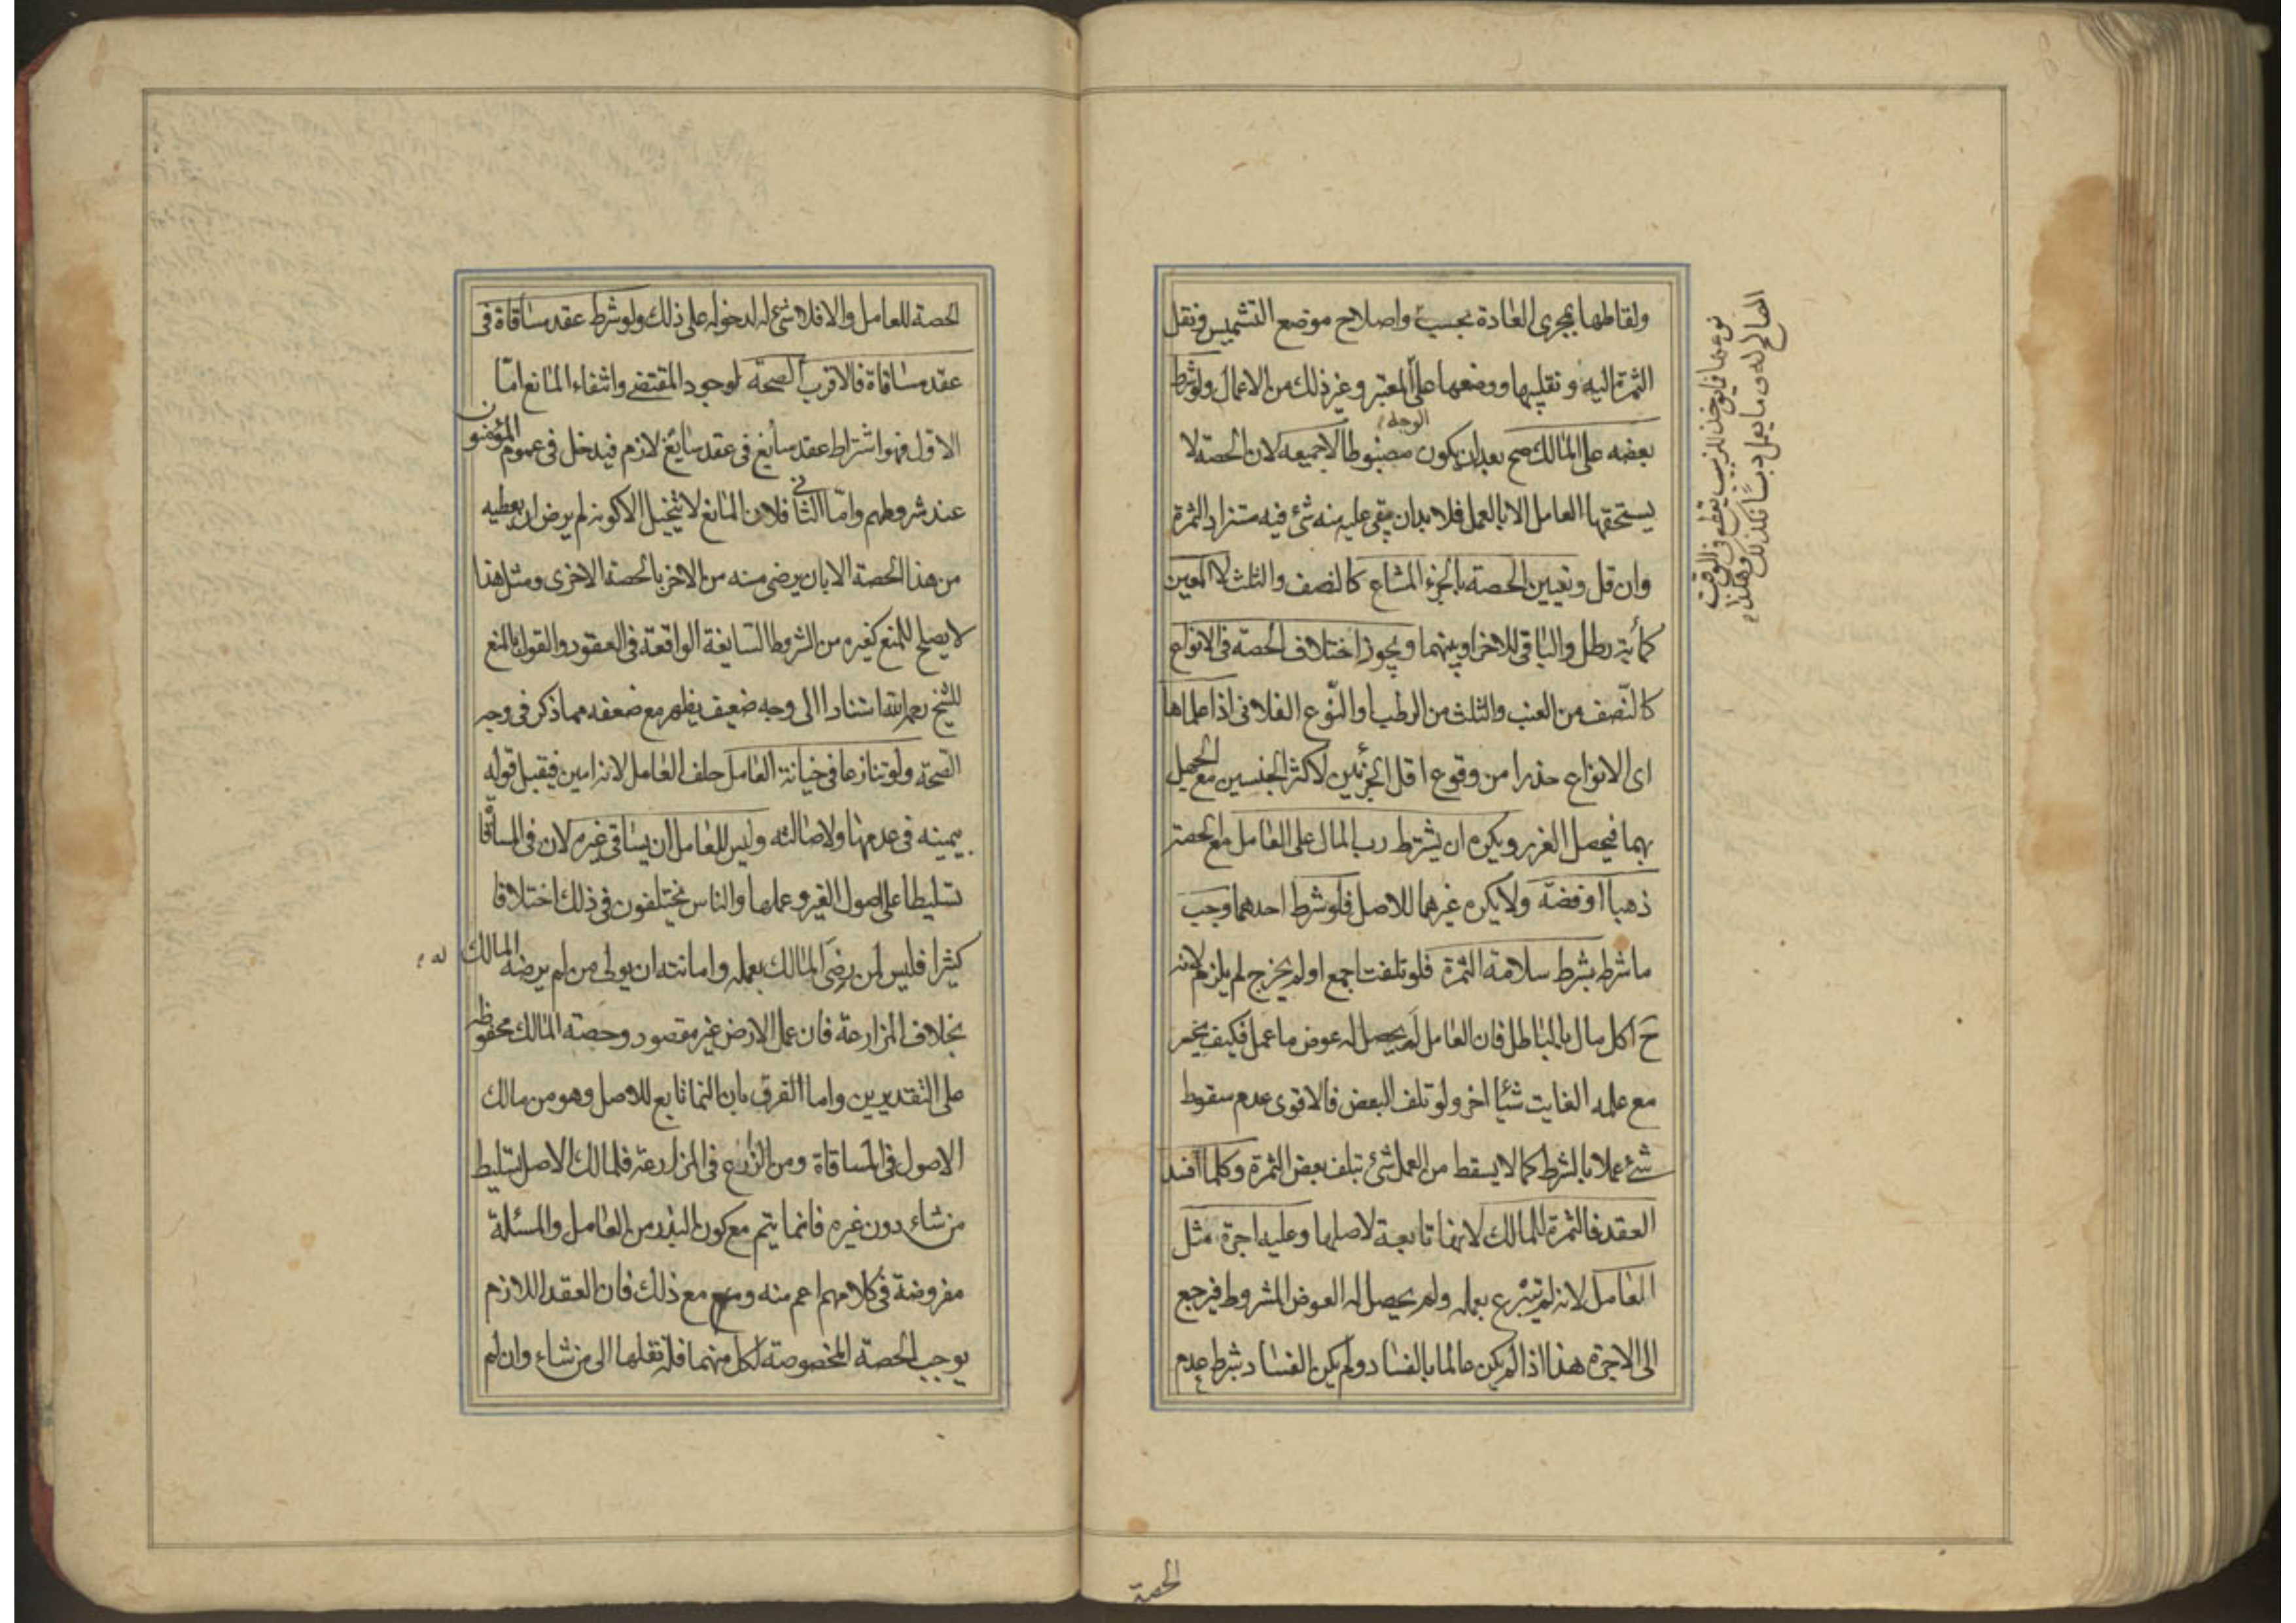 ولقاطها بمجرى العادة بحسبه واصلاح موضع التشميس ونقل
الثمرة اليه وتقليبها ووضعها على المعتبر وغير ذلك من الاعمال ولو شرط
الوجه
بعضه على المالك صح بعد ان يكون مضبوطا لا جميعه لان الحصة لا
يستحقها العامل الا بالعمل فلا بد ان يبقى عليه منه شئ فيه مستزاد الثمرة
وان قل وتعيين الحصة بالجزء المشاع كالنصف والثلث لا المعين
كمائة رطل والباقي للاخر او بينهما ويجوز اختلاف الحصة في الانواع
كالنّصف من العنب والثلث من الرطب او النّوع الفلاني اذا علماها
اى الانواع حذرا من وقوع اقل الجزئين لاكثر الجنسين مع الجهل
بهما فيحصل الغرر ويكره ان يشترط رب المال على العامل مع الحصة
ذهبا او فضة ولا يكره غيرهما للاصل فلو شرط احدهما وجب
ما شرط بشرط سلامة الثمرة فلو تلفت اجمع او لم يخرج لم يلزم لانه
ح اكل مال بالباطل فان العامل لم يحصل له عوض ما عمل فكيف يخسر
مع عمله الفايت شيئا اخر ولو تلف البعض فالاقوى عدم سقوط
شئ عملا بالشرط كما لا يسقط من العمل شئ بتلف بعض الثمرة وكلما افسد
العقد فالثمرة للمالك لانها تابعة لاصلها وعليه اجرة مثل
العامل لانه لم يتبرع بعمله ولم يحصل له العوض المشروط فيرجع
الى الاجرة هذا اذا لم يكن عالما بالفساد ولم يكن الفساد بشرط عدم
نوعها فما يؤخذ للزبيب يقطع في الوقت
الصالح له وما يعمل دبسا فكذلك وهكذا
الحصة
الحصة للعامل والا فلا شئ له لدخوله على ذلك ولو شرط عقد مساقاة في
عقد مساقاة فالاقرب الصحة لوجود المقتضى وانتفاء المانع امّا
الاول فهو اشتراط عقد سايغ في عقد سايغ لازم فيدخل في عموم المؤمنون
عند شروطهم وامّا الثاني فلان المانع لا يتخيل الا كونه لم يرض ان يعطيه
من هذا الحصة الا بان يرضى منه من الاخر بالحصة الاخرى ومثل هذا
لا يصلح للمنع كغيره من الشروط السايغة الواقعة في العقود والقول بالمنع
للشيخ رحمه الله استنادا الى وجه ضعيف يظهر مع ضعفه مما ذكر في وجه
الصحة ولو تنازعا في خيانة العامل حلف العامل لانه امين فيقبل قوله
بيمينه في عدمها ولاصالته وليس للعامل ان يساقى غيره لان في المساقاة
تسليطا على اصول الغير وعملها والناس يختلفون في ذلك اختلافا
كثيرا فليس لمن رضى المالك بعمله وامانته ان يولى من لم يرضه المالك
له
بخلاف المزارعة فان عمل الارض غير مقصود وحصته المالك محفوظه
على التقديرين واما الفرق بان النما تابع للاصل وهو من مالك
الاصول في المساقاة ومن الزرع في المزارعة فلمالك الاصل تسليط
من شاء دون غيره فانما يتم مع كون البذر من العامل والمسئلة
مفروضة في كلامهم اعم منه ومع ذلك فان العقد اللازم
يوجب الحصة المخصوصة لكل منهما فله نقلها الى من شاء وان لم